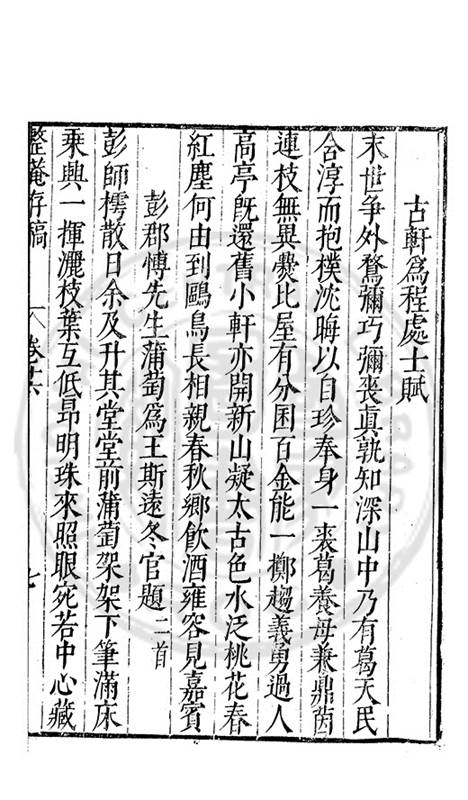 古軒爲程處士賦
末世争外鶩彌巧彌喪眞孰知深山中乃有葛天民
含淳而抱樸沈晦以自珍奉身一裘葛養母兼鼎茵
連枝無異㸑比屋有分囷百金能一擲趨義勇過人
高亭旣還舊小軒亦開新山凝太古色水泛桃花春
紅塵何由到鷗鳥長相親春秋鄉飮酒雍容見嘉賓
彭郡愽先生蒲萄爲王斯遠冬官題二首
彭師樗散日余及升其堂堂前蒲萄架架下筆滿床
乘興一揮灑枝葉互低昂明珠來照眼宛若中心藏
整菴存稿
卷十六
七